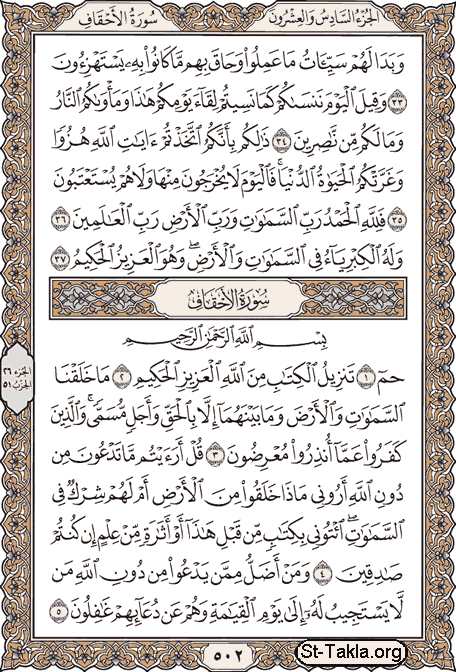 الجزء السادس والعشرون
سورة الأحقاف
وَبَدَا لَهُمْ سَيِّـَٔاتُ مَا عَمِلُوا۟ وَحَاقَ بِهِم مَّا كَانُوا۟ بِهِۦ يَسْتَهْزِءُونَ
٣٣ وَقِيلَ ٱلْيَوْمَ نَنسَىٰكُمْ كَمَا نَسِيتُمْ لِقَآءَ يَوْمِكُمْ هَٰذَا وَمَأْوَىٰكُمُ ٱلنَّارُ
وَمَا لَكُم مِّن نَّٰصِرِينَ ٣٤ ذَٰلِكُم بِأَنَّكُمُ ٱتَّخَذْتُمْ ءَايَٰتِ ٱللَّهِ هُزُوًا
وَغَرَّتْكُمُ ٱلْحَيَوٰةُ ٱلدُّنْيَا ۚ فَٱلْيَوْمَ لَا يُخْرَجُونَ مِنْهَا وَلَا هُمْ يُسْتَعْتَبُونَ
٣٥ فَلِلَّهِ ٱلْحَمْدُ رَبِّ ٱلسَّمَٰوَٰتِ وَرَبِّ ٱلْأَرْضِ رَبِّ ٱلْعَٰلَمِينَ ٣٦
وَلَهُ ٱلْكِبْرِيَآءُ فِى ٱلسَّمَٰوَٰتِ وَٱلْأَرْضِ ۖ وَهُوَ ٱلْعَزِيزُ ٱلْحَكِيمُ ٣٧
سُورَةُ الأَحْقَافِ
بِسْمِ ٱللَّهِ ٱلرَّحْمَٰنِ ٱلرَّحِيمِ
حمٓ ١ تَنزِيلُ ٱلْكِتَٰبِ مِنَ ٱللَّهِ ٱلْعَزِيزِ ٱلْحَكِيمِ ٢ مَا خَلَقْنَا
ٱلسَّمَٰوَٰتِ وَٱلْأَرْضَ وَمَا بَيْنَهُمَآ إِلَّا بِٱلْحَقِّ وَأَجَلٍ مُّسَمًّى ۚ وَٱلَّذِينَ
كَفَرُوا۟ عَمَّآ أُنذِرُوا۟ مُعْرِضُونَ ٣ قُلْ أَرَءَيْتُم مَّا تَدْعُونَ مِن
دُونِ ٱللَّهِ أَرُونِى مَاذَا خَلَقُوا۟ مِنَ ٱلْأَرْضِ أَمْ لَهُمْ شِرْكٌ فِى
ٱلسَّمَٰوَٰتِ ۖ ٱئْتُونِى بِكِتَٰبٍ مِّن قَبْلِ هَٰذَآ أَوْ أَثَٰرَةٍ مِّنْ عِلْمٍ إِن كُنتُمْ
صَٰدِقِينَ ٤ وَمَنْ أَضَلُّ مِمَّن يَدْعُوا۟ مِن دُونِ ٱللَّهِ مَن
لَّا يَسْتَجِيبُ لَهُۥٓ إِلَىٰ يَوْمِ ٱلْقِيَٰمَةِ وَهُمْ عَن دُعَآئِهِمْ غَٰفِلُونَ ٥
الجزء ٢٦
الحزب ٥١
٥٠٢
St-Takla.org